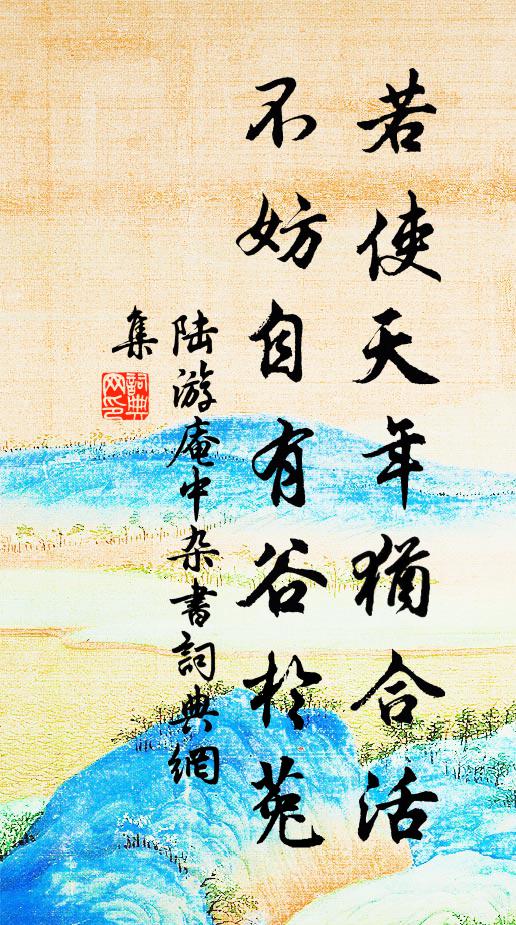 若使天年猶合活
不妨自有谷於菟
陆游庵中杂書詞典網
集
詞典网印